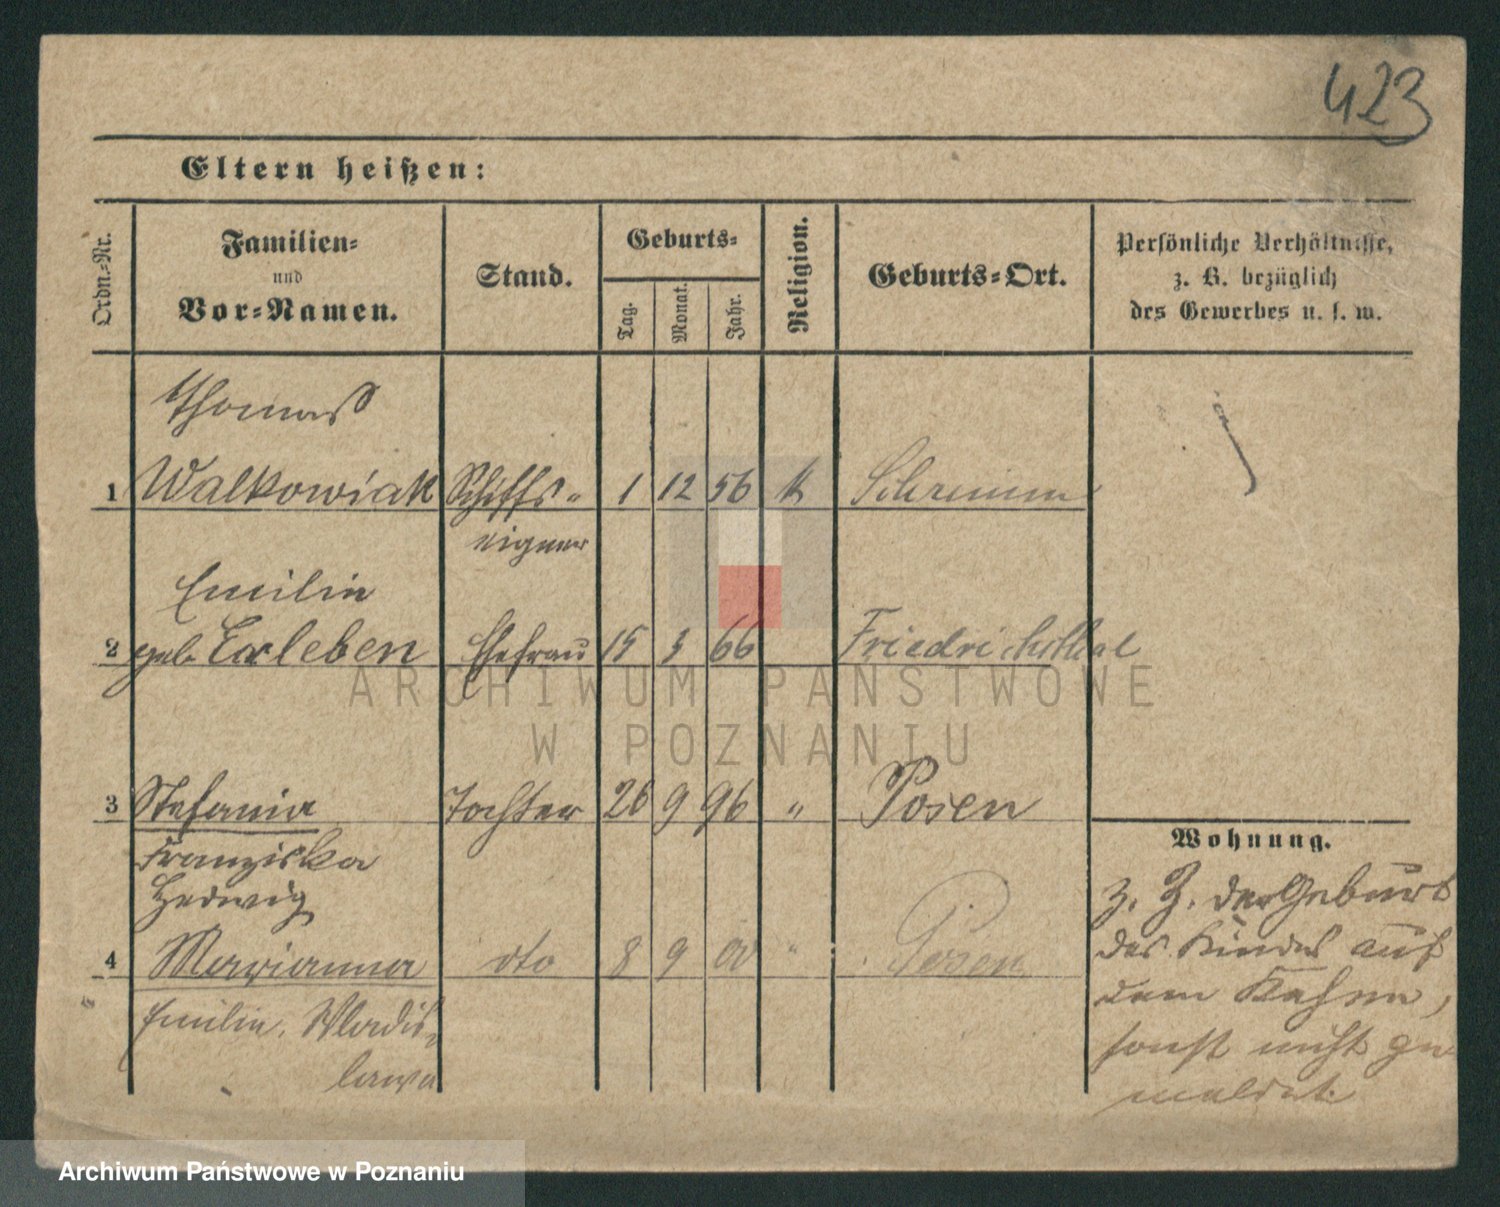 423
Eltern heißen:
Ordn.-Nr.
Familien-
und
Vor-Namen.
Stand.
Geburts-
Tag.
Monat.
Jahr.
Religion.
Geburts-Ort.
Persönliche Verhältnisse,
z. B. bezüglich
des Gewerbes u. s. w.
Thomas
1 Walkowiak Schiffs- 1 12 56 k Schrimm
eigner
Emilie
2 geb. Exleben Ehefrau 15 3 66 Friedrichsthal
ARCHIWUM PAŃSTWOWE
W POZNANIU
3 Stefania Tochter 26 9 96 " Posen
Franziska
Hedwig
4 Marianna dto 8 9 00 " Posen
Emilie, Wladis-
lawa
Wohnung.
z. Z. der Geburt
des Kindes auf
dem Kahne,
sonst nicht ge
meldet.
Archiwum Państwowe w Poznaniu